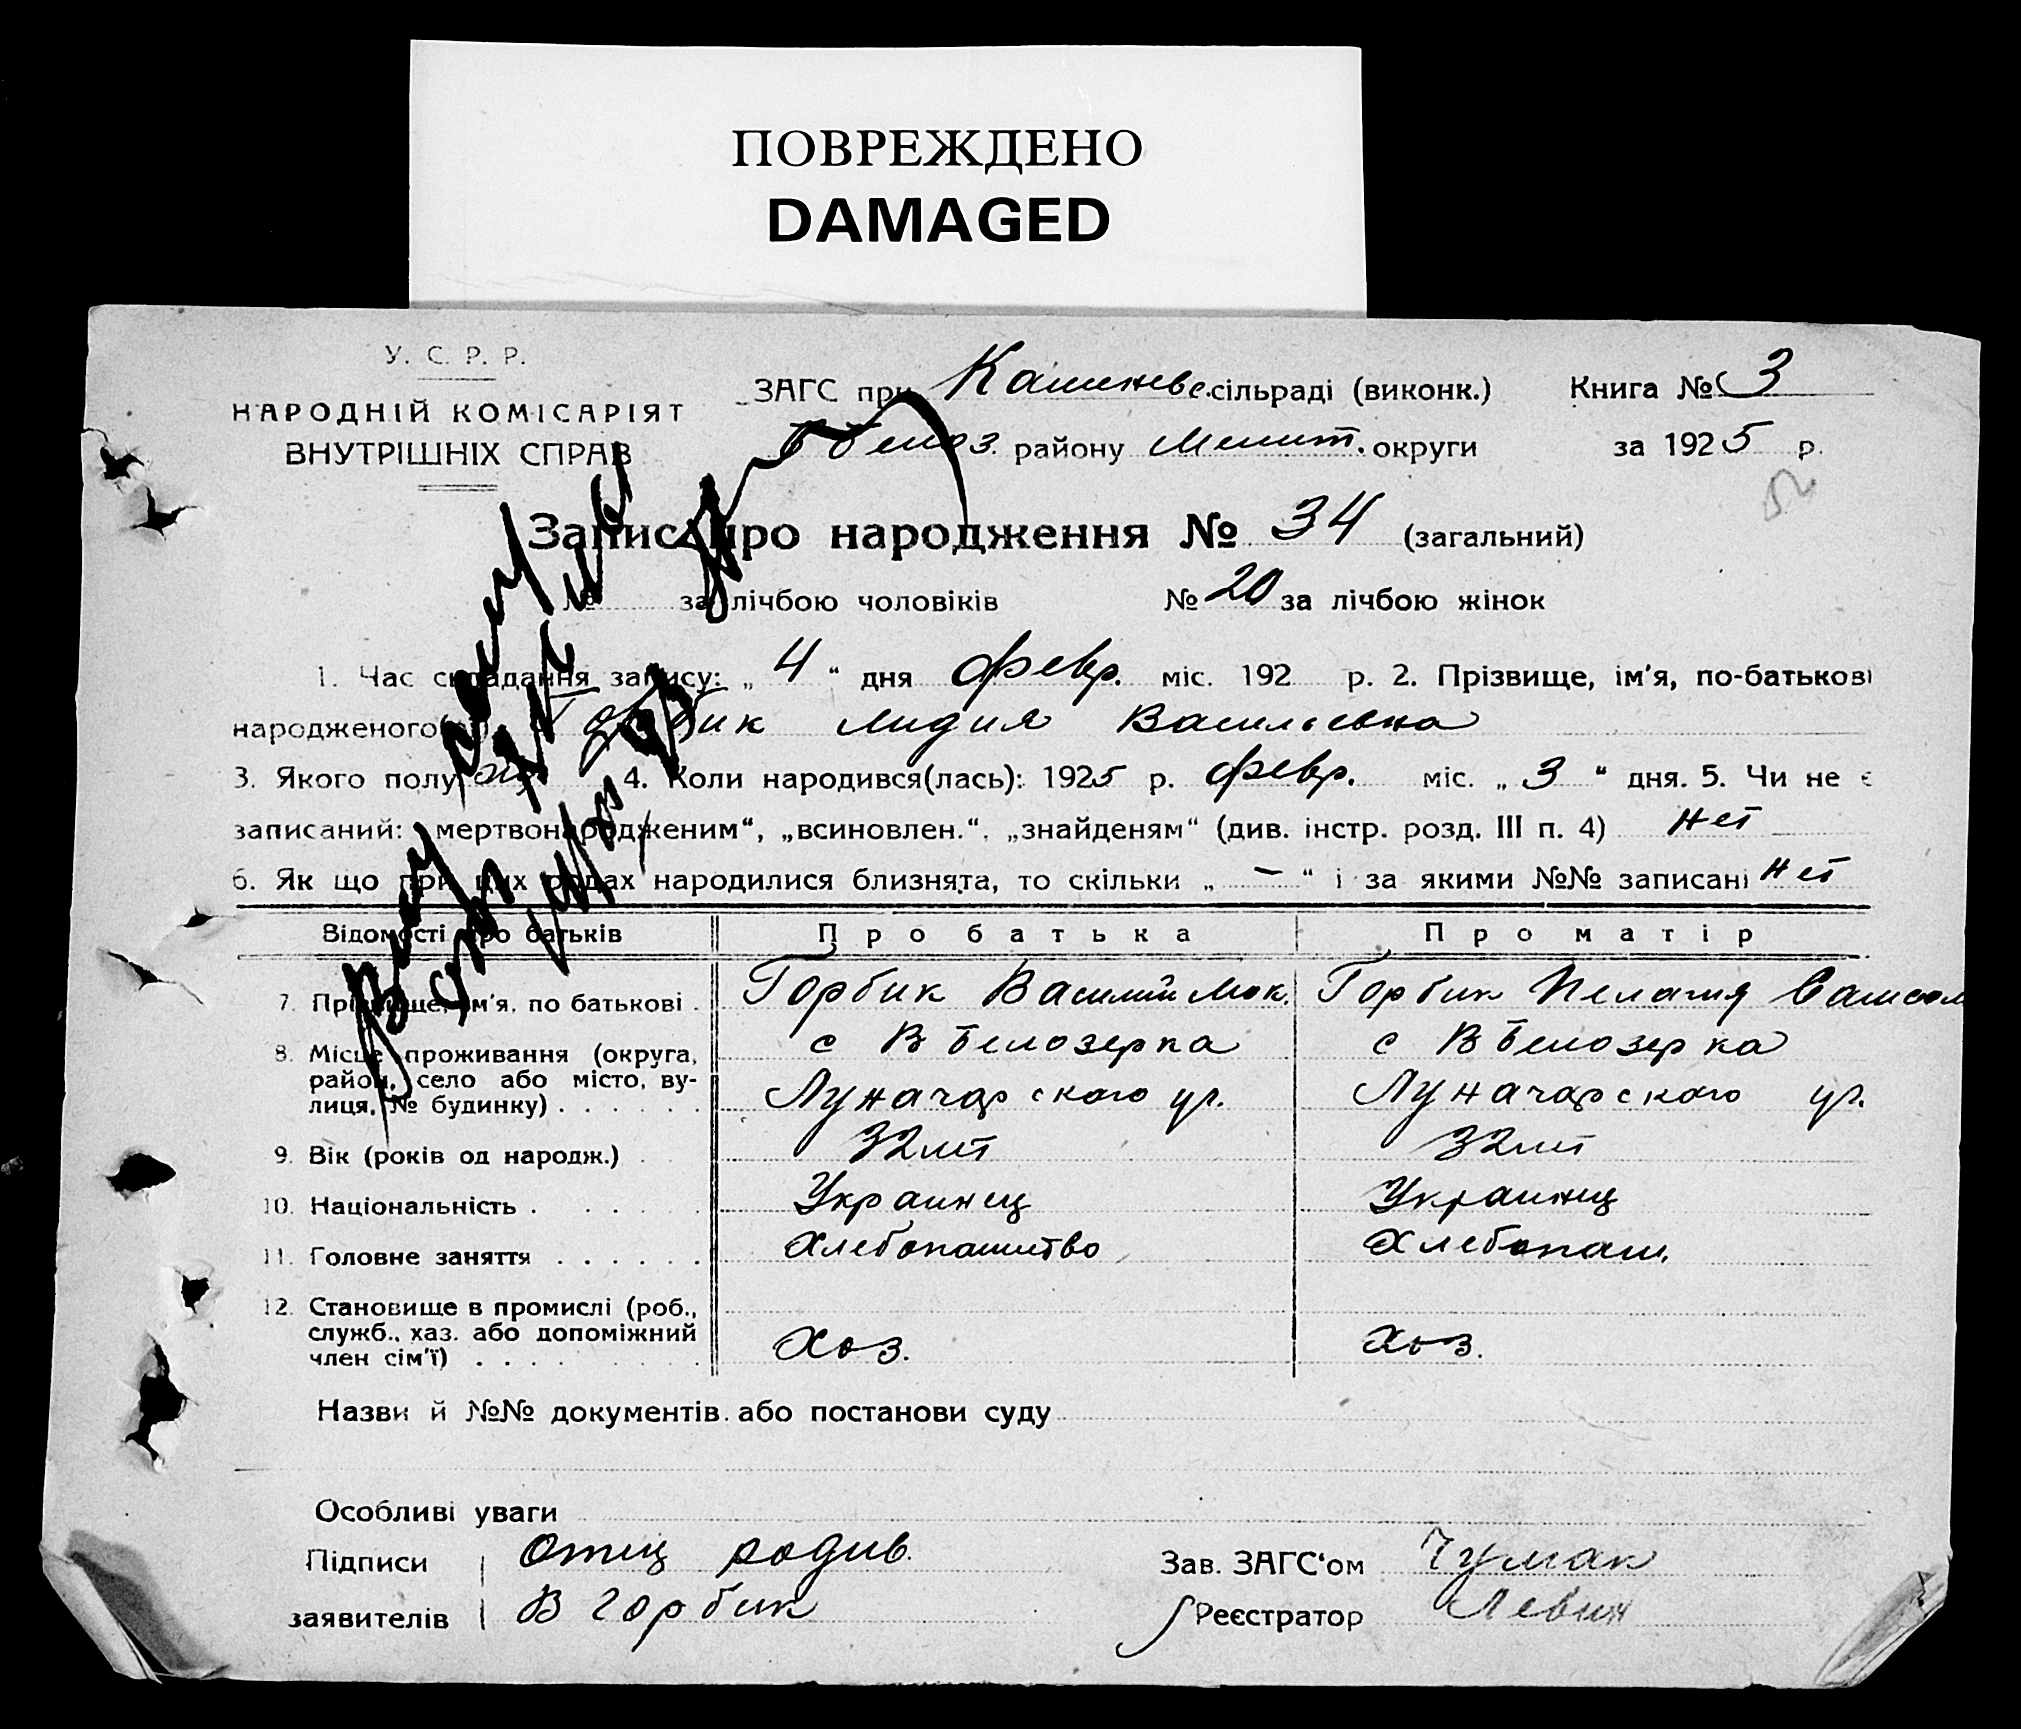 ПОВРЕЖДЕНО
DAMAGED
У. С. Р. Р.
НАРОДНІЙ КОМІСАРІЯТ
ВНУТРІШНІХ СПРАВ
ЗАГС при сільраді (виконк.) Книга № 3
району Мелит. округи за 1925 р.
52
Запис про народження № 34 (загальний)
№ за лічбою чоловіків № 20 за лічбою жінок
1. Час складання запису: „ 4 “ дня февр. міс. 192 р. 2. Прізвище, ім'я, по-батькові
народженого(ої) Горбик Лидия Васильевна
3. Якого полу жр. 4. Коли народився(лась): 1925 р. февр. міс. „ 3 “ дня. 5. Чи не є
записаний: „мертвонародженим“, „всиновлен.“, „знайденям“ (див. інстр. розд. III п. 4) нет
6. Як що при цих родах народилися близнята, то скільки „ – “ і за якими №№ записані нет
Відомості про батьків Про батька Про матір
7. Прізвище, ім'я, по батькові . Горбик Василий Мак. Горбик Пелагия
8. Місце проживання (округа, с В Белозерка с В Белозерка
район, село або місто, ву-
лиця, № будинку) . . . . . . Луначарского ул. Луначарского ул.
9. Вік (років од народж.) . 32 лет 32 лет
10. Національність . . . . . . Украинец Украинец
11. Головне заняття . . . . . . Хлебопашество Хлебопаш.
12. Становище в промислі (роб.,
служб., хаз. або допоміжний
член сім'ї) . . . . . . Хоз. Хоз.
Назви й №№ документів або постанови суду
Особливі уваги
Підписи Отец родив. Зав. ЗАГС'ом Чумак
заявителів В Горбик Реєстратор Левин